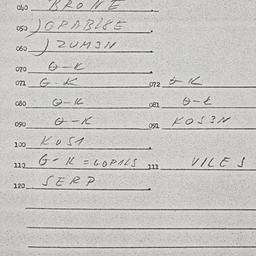 040 BRONE
050 )GRABLŠE
060 )ZUMJN
070 G-K
071 G-K 072 G-K
080 G-K 081 G-K
090 G-K 091 KOSJN
100 KOSA
110 G-K=GOPALS 111 VILE J
120 SERP